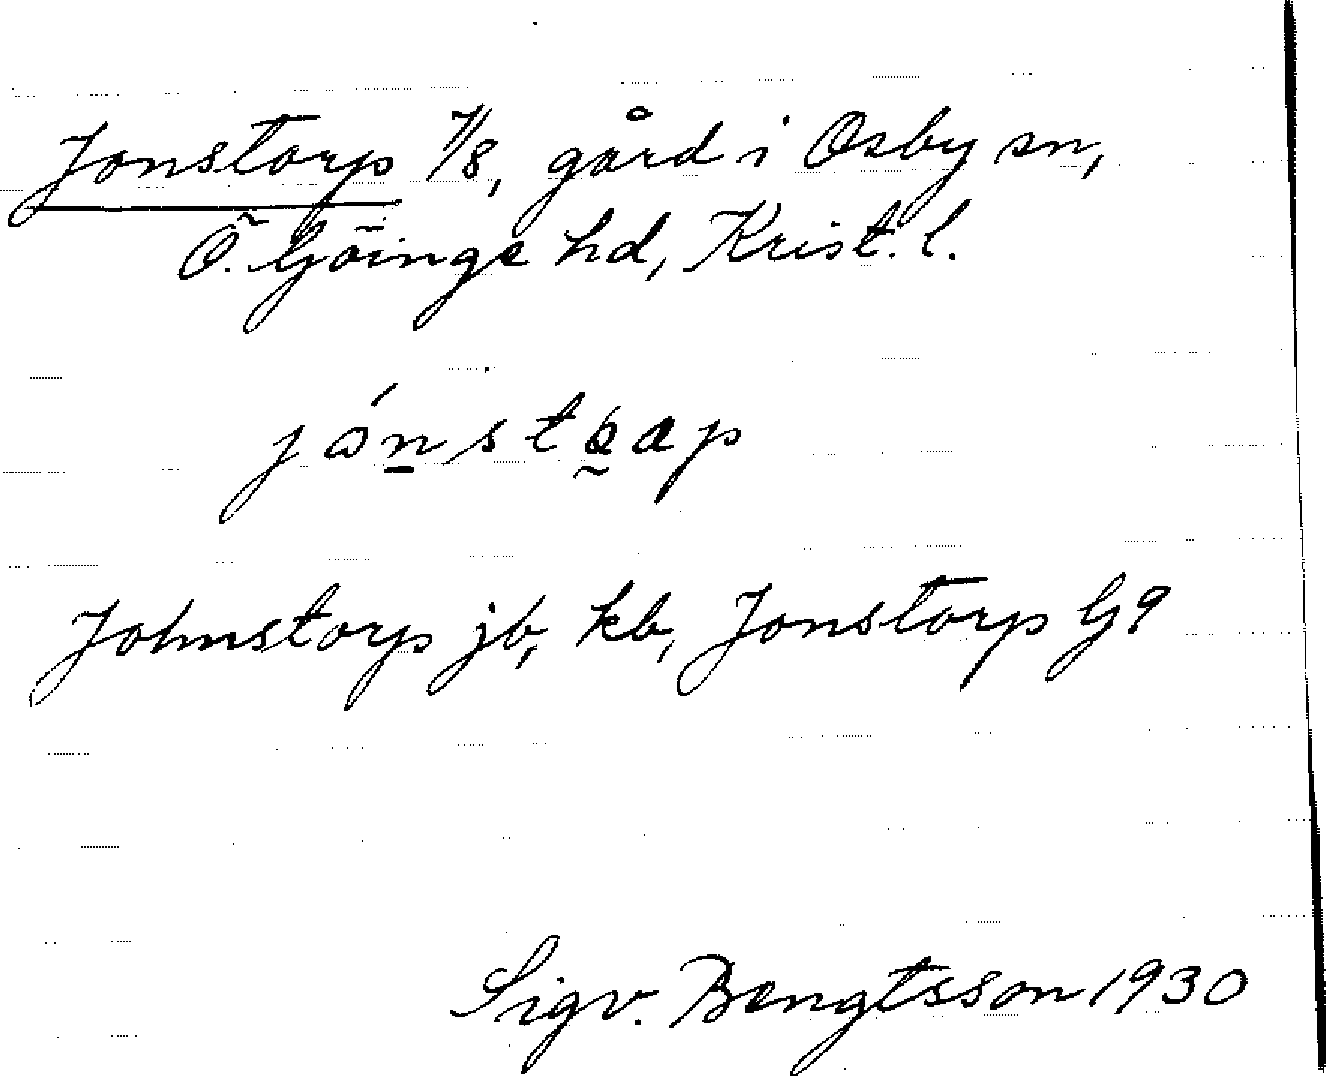 Jonstorp 7/8, gård i Osby sn,
Ö. Göinge hd, Krist. l.
Johnstorp jb, kb, Jonstorp G9
Sigv. Bengtsson 1930